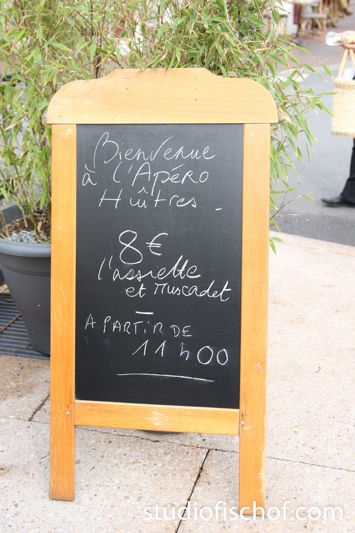 Bienvenue
à l'Apéro
Huîtres -
8€
l'assiette
et Muscadet
A PARTIR DE
11h00
studiofischof.com